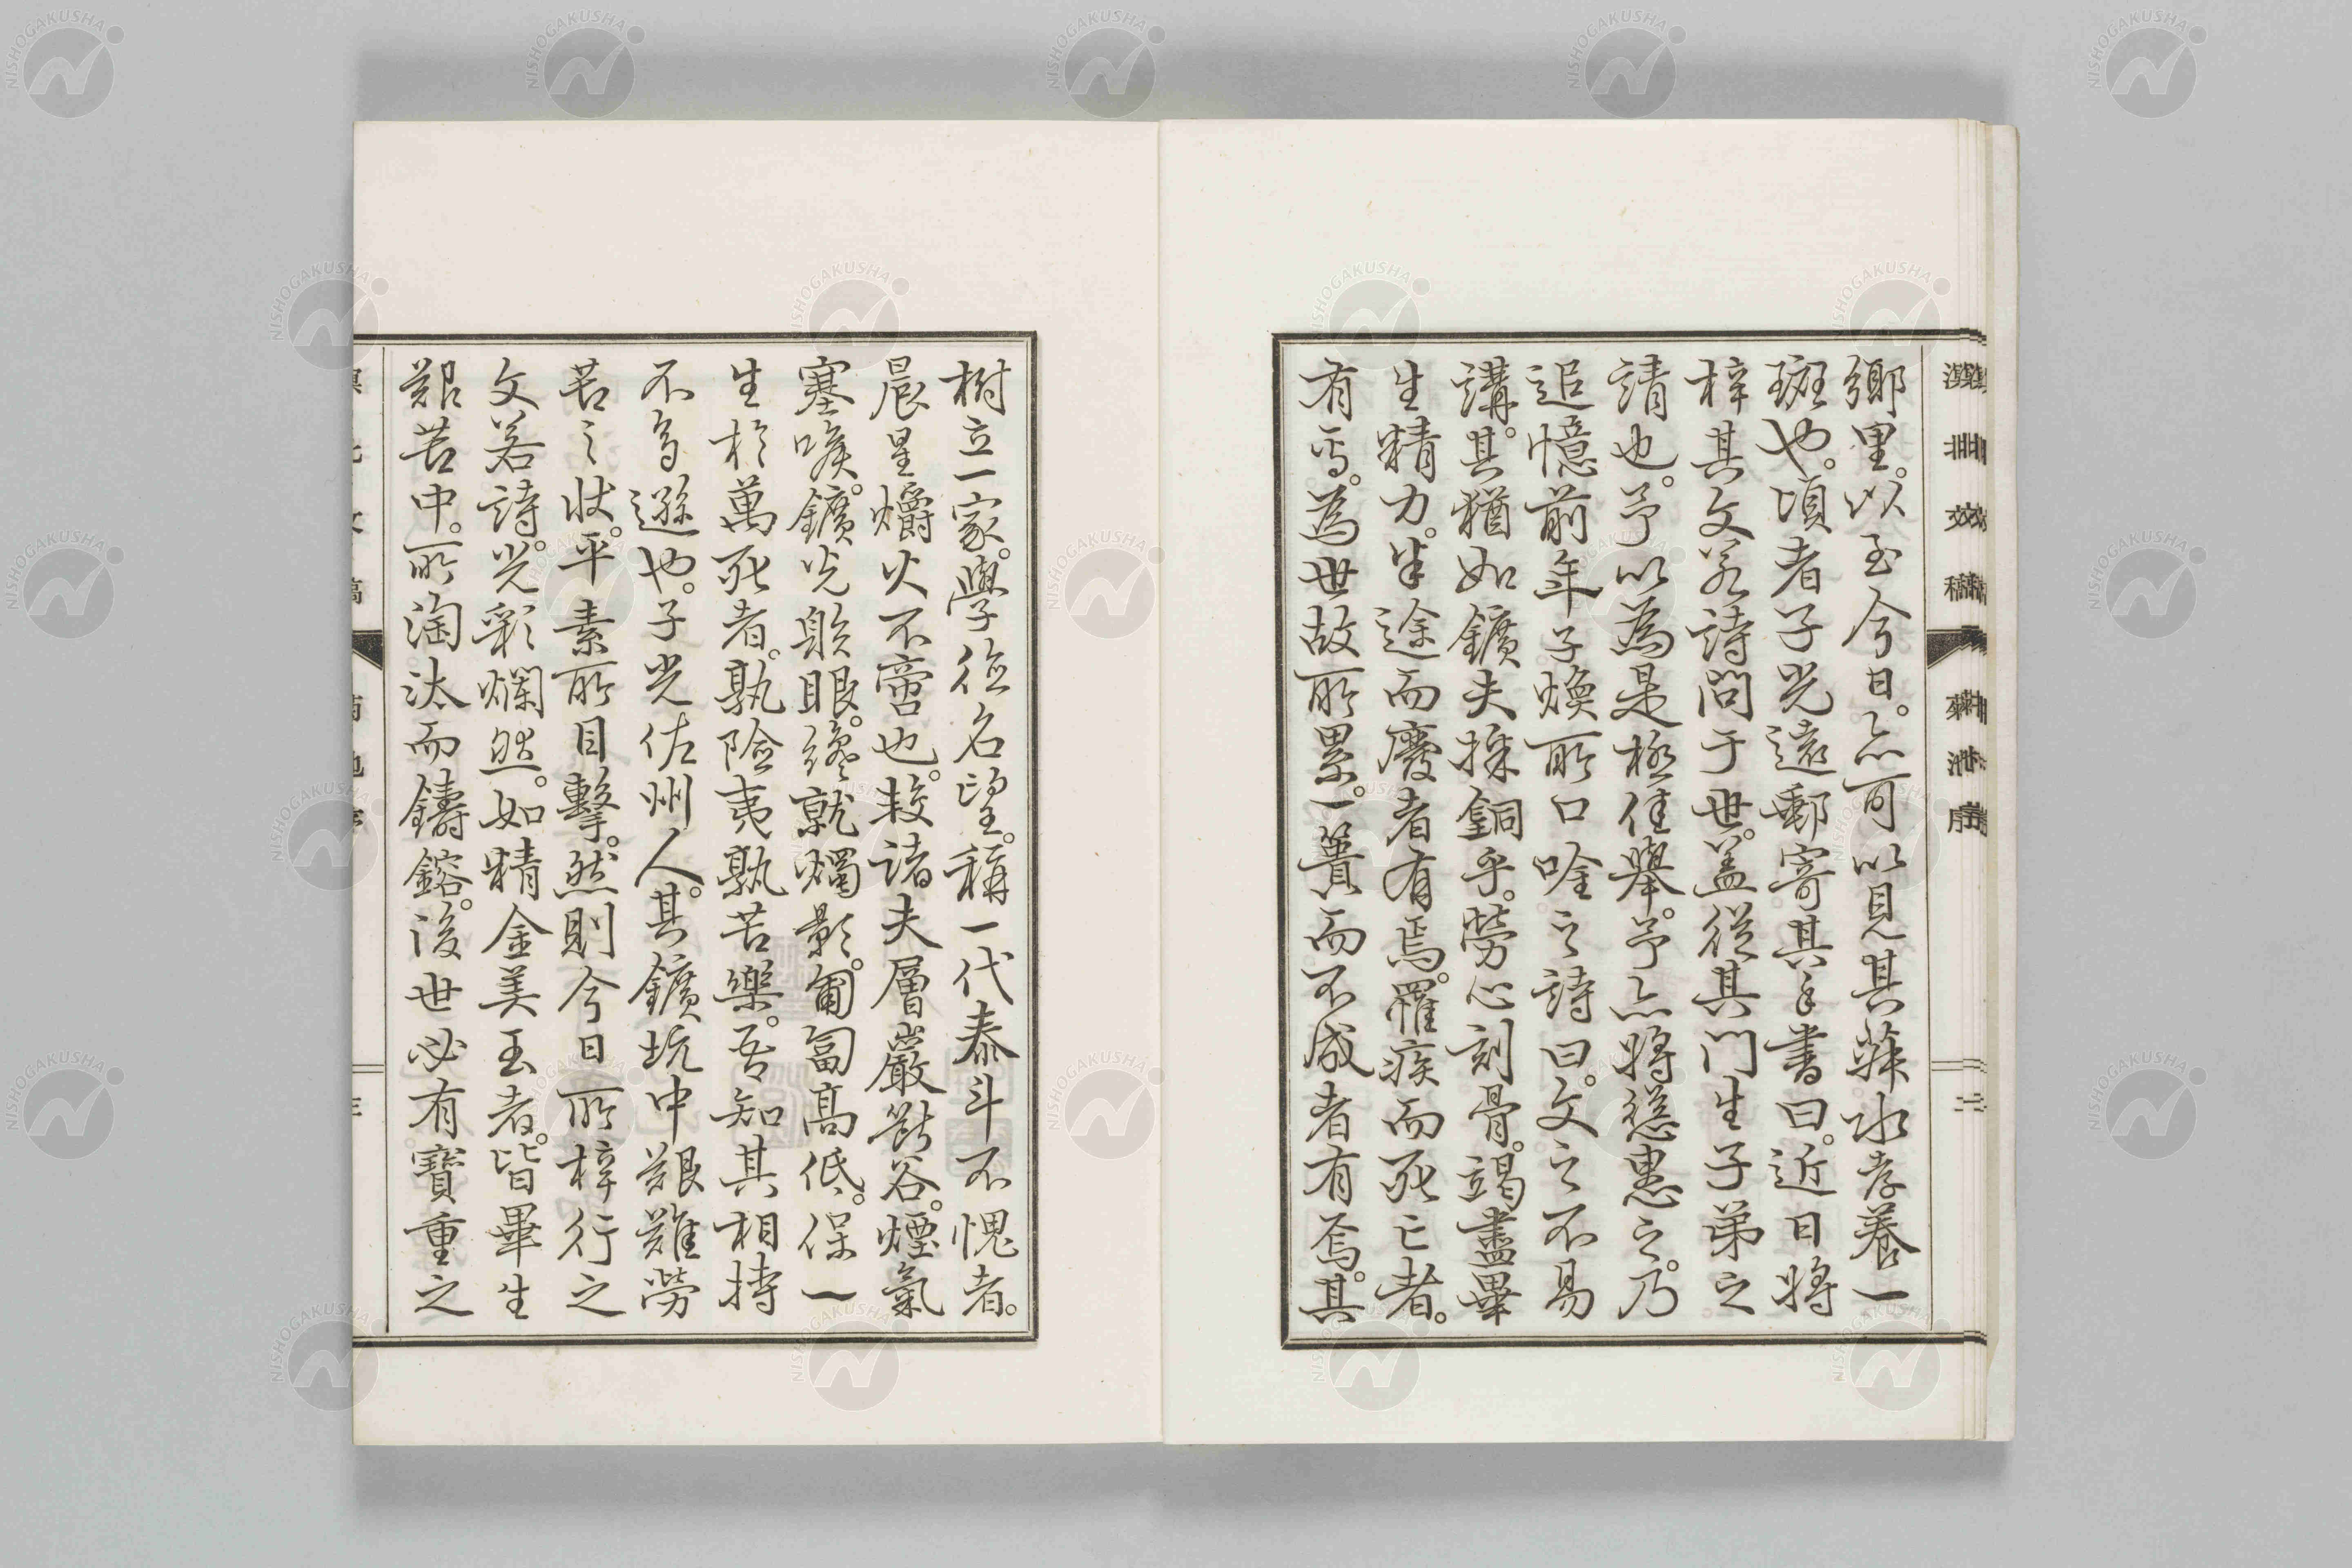 鄉里。以至今日。亦可以見其菽水孝養一
斑也。頃者子光遠郵寄其手書曰。近日將
梓其文若詩問于世。蓋從其門生子弟之
請也。予以為是極佳舉。予亦將慫慂之。乃
追憶前年子煥所口唫之詩曰。文之不易
講。其猶如鑛夫採銅乎。勞心刻骨。竭盡畢
生精力。半途而廢者有焉。罹疾而死亡者。
有焉。為世故所累。一簣而不成者有焉。其
樹立一家。學位名望。稱一代泰斗不愧者。
晨星爝火不啻也。較諸夫層巖嵌谷。煙氣
塞喉。鑛光眩眼。纔就燭影。匍匐高低。保一
生於萬死者。孰險夷孰苦樂。吾知其相持
不多遜也。子光佐州人。其鑛坑中艱難勞
苦之狀。平素所目擊。然則今日所梓行之
文若詩。光彩爛然。如精金美玉者。皆畢生
艱苦中。所淘汰而鑄鎔。後世必有寶重之